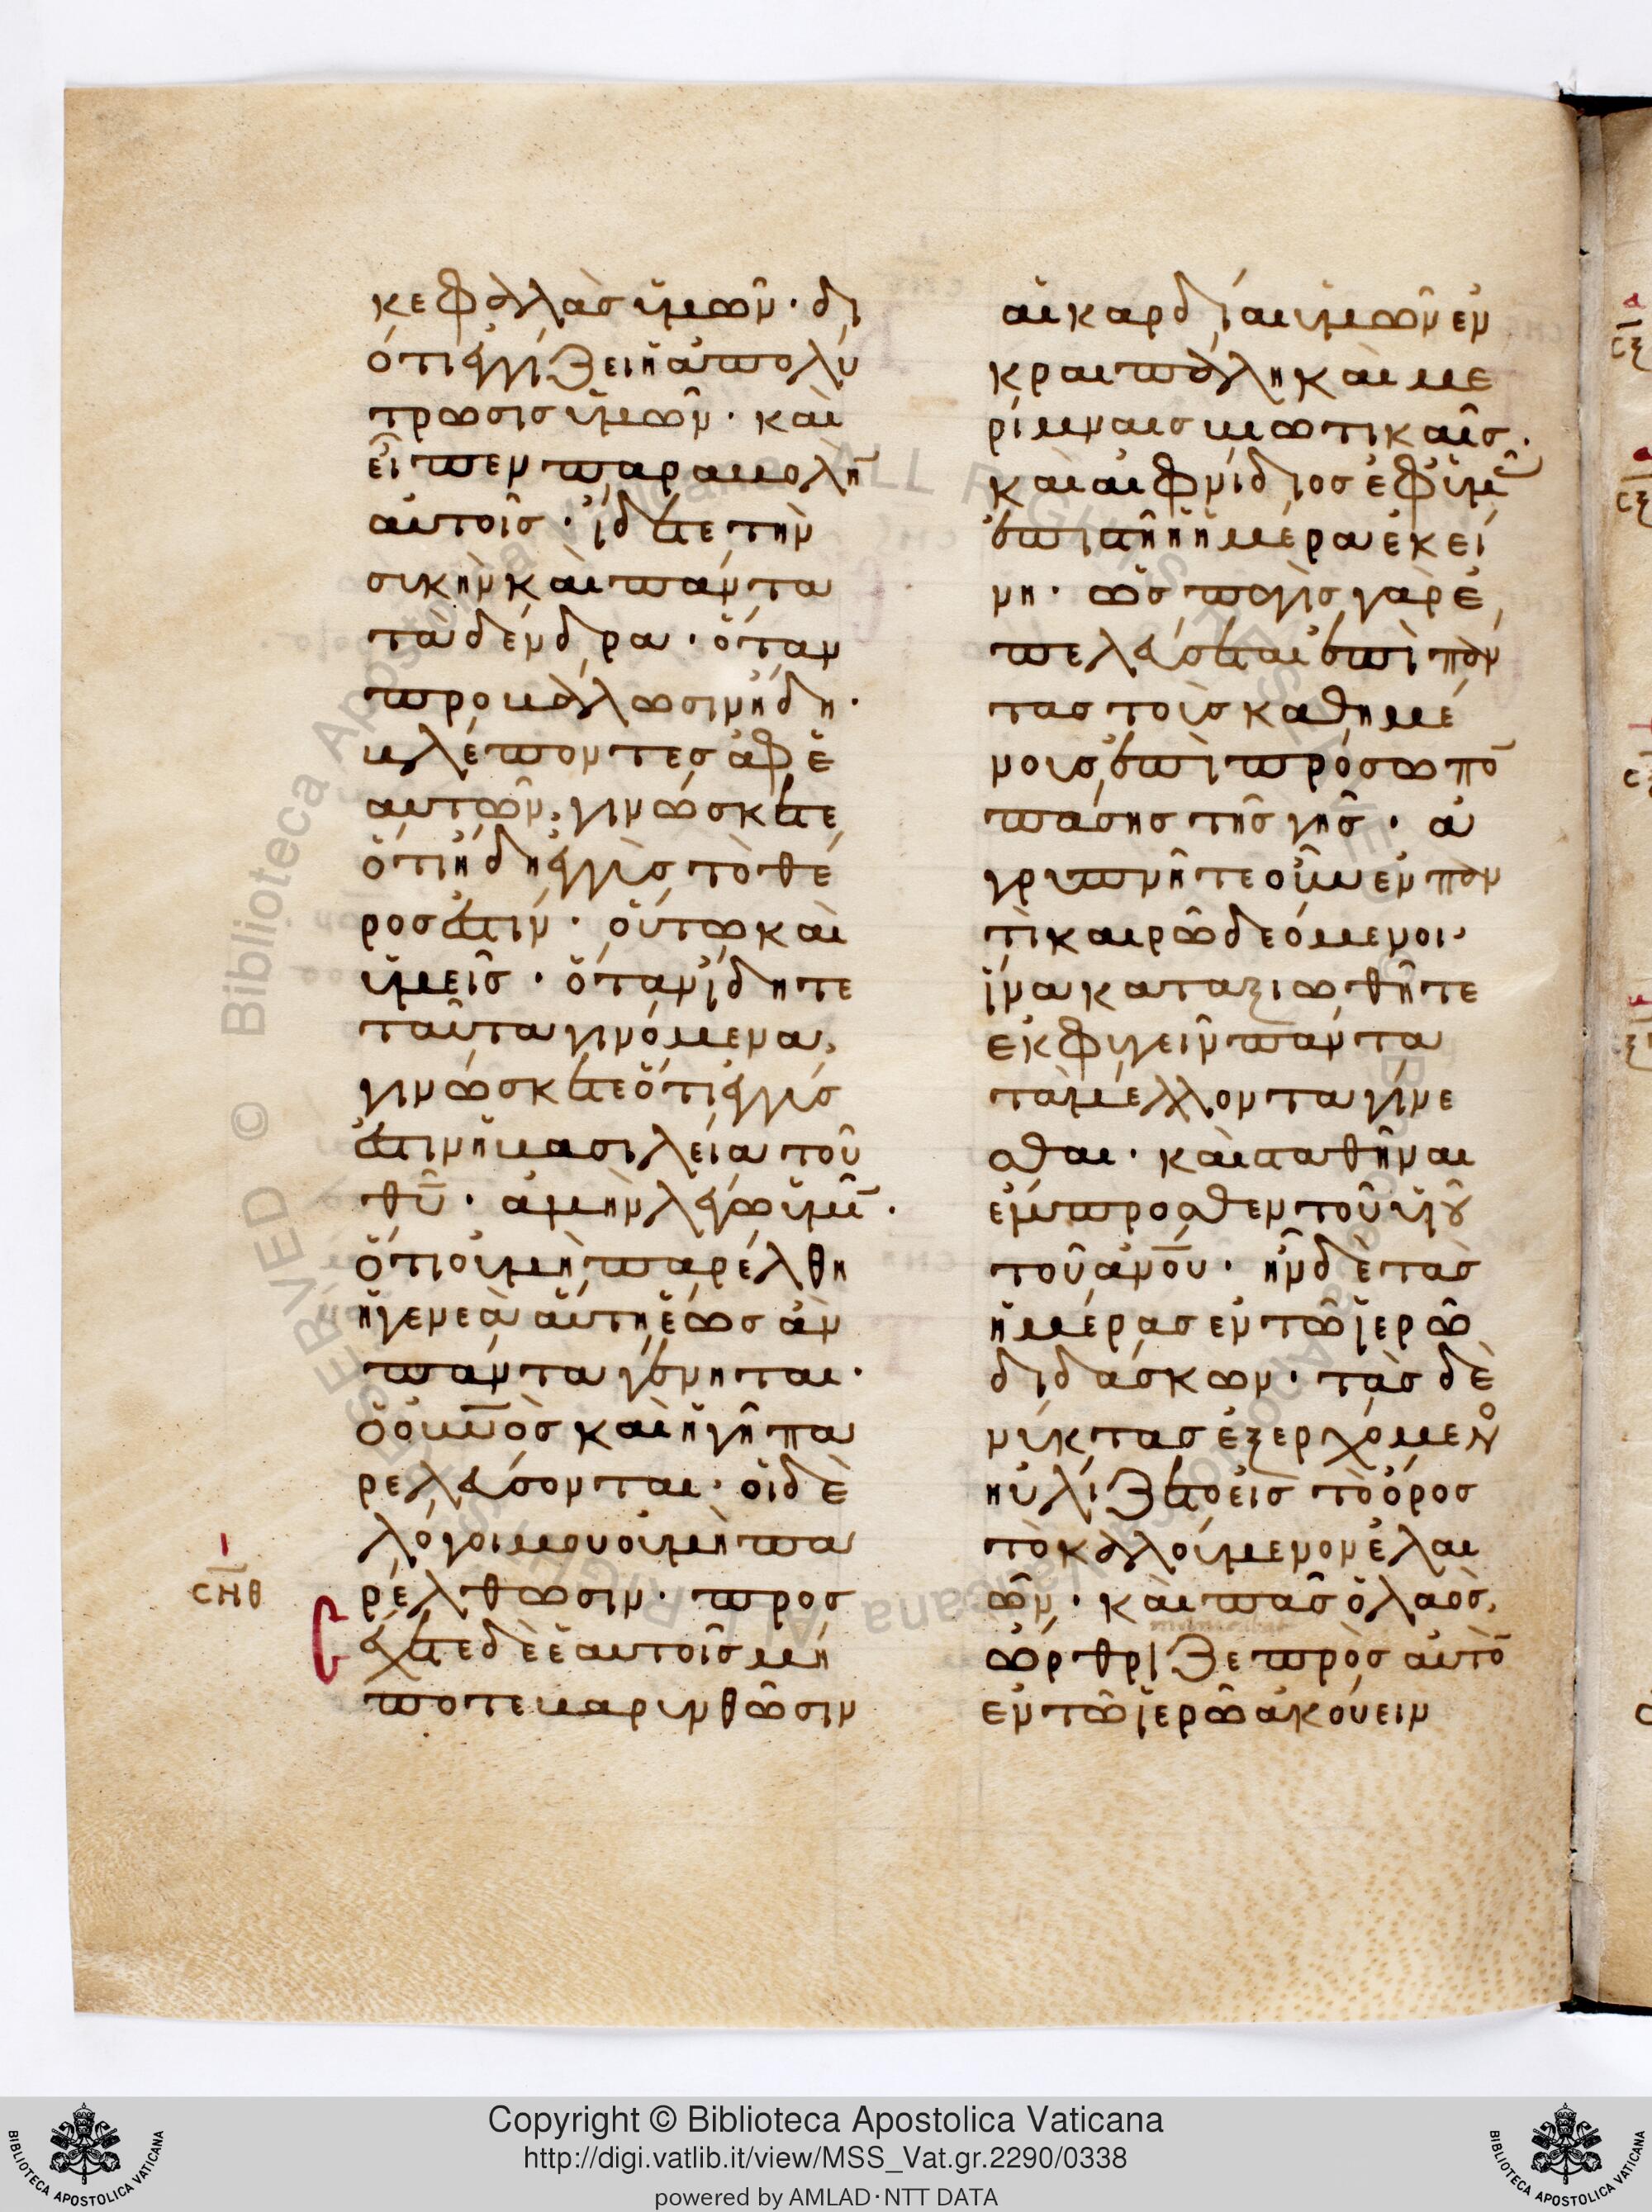 κεφαλὰς ὑμῶν· δι
ότι ἐγγίζει ἡ ἀπολύ
τρωσις ὑμῶν· καὶ
εἶπεν παραβολὴ̄
αὐτοῖς· ἴδετε τὴν
συκὴν καὶ πάντα
τὰ δένδρα· ὅταν
προβάλωσιν ἤδη·
βλέποντες ἀφ ἑ
αυτῶν, γινώσκετε
ὅτι ἤδη ἐγγὺς τὸ θέ
ρος ἐστιν· οὕτω καὶ
ὑμεῖς· ὅταν ἴδητε
ταῦτα γινόμενα,
γινώσκετε ὅτι ἐγγύς
ἐστιν ἡ βασιλεία τοῦ
θῦ· ἀμὴν λέγω ὑμῖ̄·
ὅτι οὐ μὴ παρέλθη
ἡ γενεὰ αὕτη ἕως ἂν
πάντα γένηται·
ὁ οὐνὸς καὶ ἡ γῆ πα
ρελεύσονται· οἱ δὲ
λόγοι μου οὐ μὴ πα
ρέλθωσιν· προσ
έχετε δὲ ἑαυτοῖς μή
ποτε βαρυνθῶσιν
ϲΗθ
ι
αἱ καρδίαι ὑμῶν ἐν
κραιπάλη καὶ με
ρίμναις βιωτικαῖς·
καὶ αἰφνίδιος ἐφ ὑμᾶ
ἐπιστῆ ἡ ἡμέρα ἐκεί
νη· ὡς παγὶς γὰρ ἐ
πελεύσεται ἐπὶ πάν
τας τοὺς καθημέ
νους ἐπὶ πρόσωπο̄
πάσης τῆς γῆς· ἀ
γρυπνῆτε οὖν ἐν παν
τὶ καιρῶ δεόμενοι·
ἵνα καταξιωθῆτε
ἐκφυγεῖν πάντα
τὰ μέλλοντα γίνε
σθαι· καὶ σταθῆναι
ἔμπροσθεν τοῦ υἱοῦ
τοῦ ἀνου· ἦν δὲ τὰς
ἡμέρας ἐν τῶ ἱερῶ
διδάσκων· τὰς δὲ
νύκτας ἐξερχόμενο
ηὐλίζετο εἰς τὸ ὄρος
τὸ καλούμενον ἐλαι
ῶν· καὶ πᾶς ὁ λαὸς,
ὤρθριζε πρὸς αὐτὸ̄
ἐν τῶ ἱερῶ ἀκούειν
Copyright © Biblioteca Apostolica Vaticana
http://digi.vatlib.it/view/MSS_Vat.gr.2290/0338
powered by AMLAD·NTT DATA